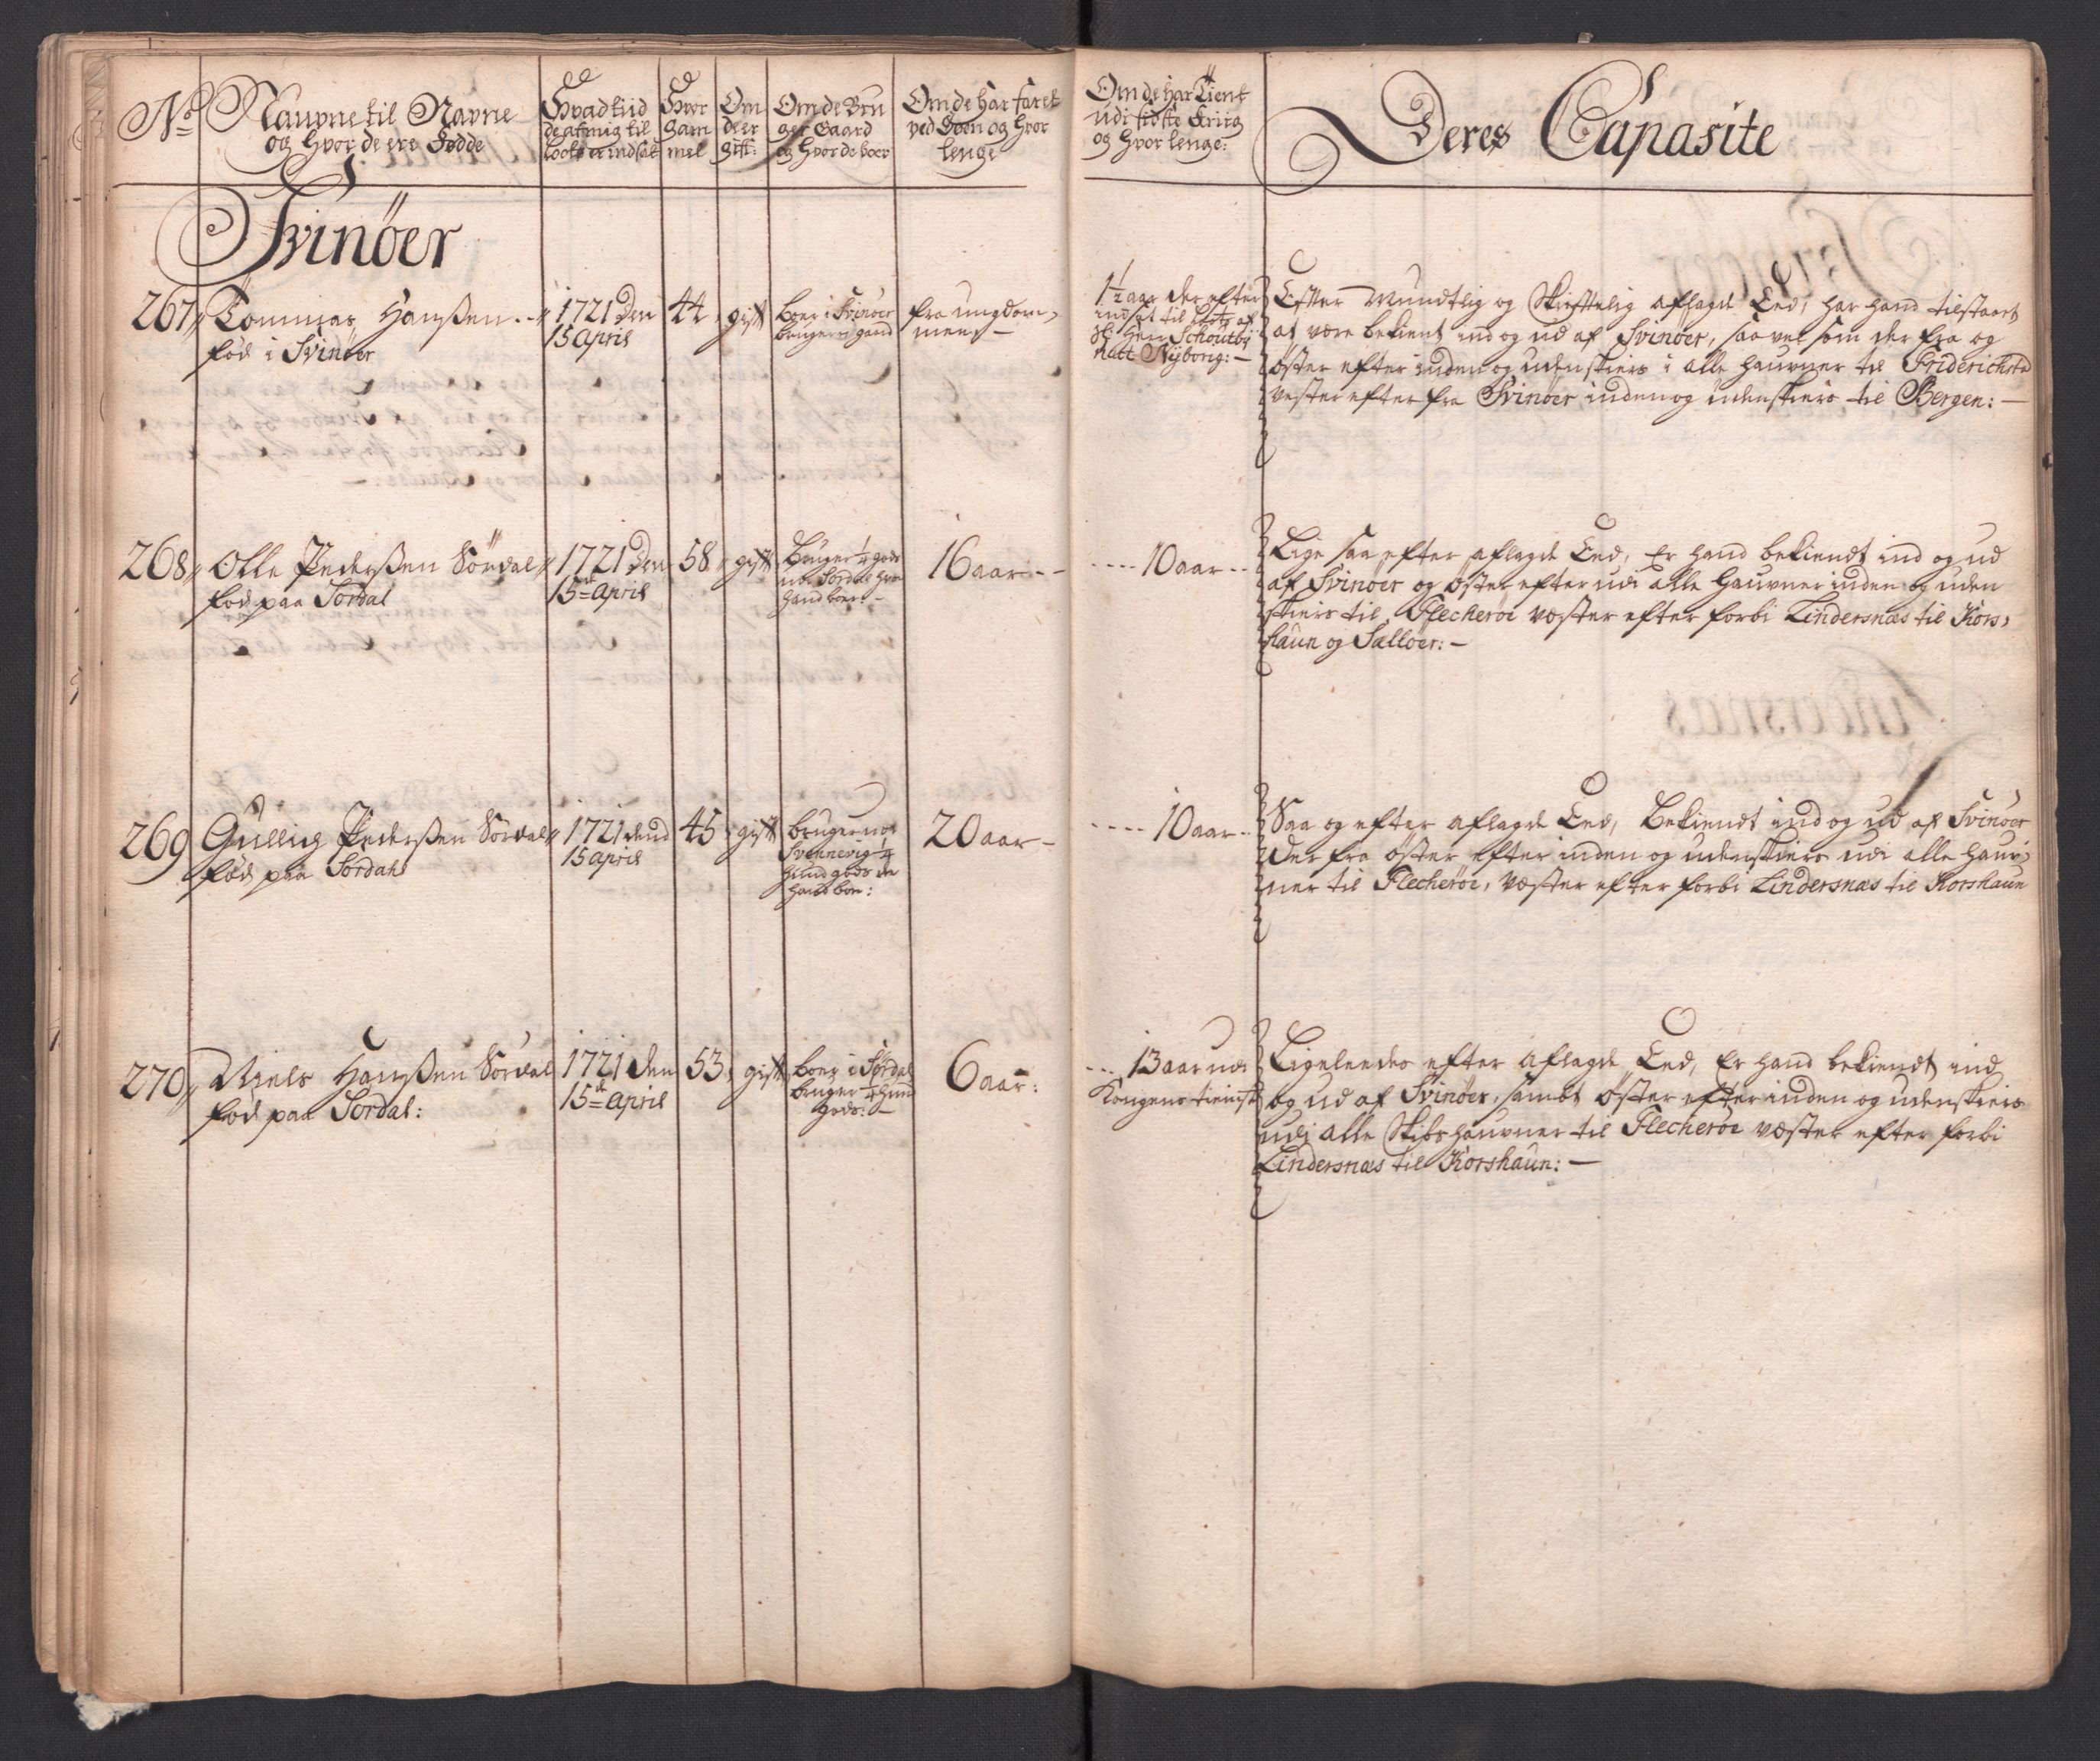 No
Naupne til Navne
og Hvor de ere Fødde
Hvad tiid
de af mig til
Loots er indsat
Hvor
gam
mel
Om
de er
gift:
Om de Bru
ger Gaard
og Hvor de boer
Om de har faret
ved Søen og Hvor
lenge
Om de har Tient
udi sidste Kriig
og Hvor lenge:
Deres Capasite
Svinöer
267
Tommas Hanßen
fød i Svinöer
1721 den
15 April
44
gift
boer i Svinöer
bruger ej gaard
fra ungdom
men
1½ aar der efter
indsat til Lots af
Hr Schoutby
natt Nyborg:
Efter Mundtlig og Skriftelig aflagde Eed, har hand tilstaaet
at være bekient ind og ud af Svinöer, saa vel som der fra og
øster efter inden og udenskiers i alle hauvner til Friderichstad
vester efter fra Svinöer inden og udenskiers til Bergen:
268
Olle Pederßen Sördal
fød paa Sördal
1721 den
15de April
58
gift
Bruger ¼ gods
Sördal hvor
hand boer
16 aar
10 aar
Lige saa efter aflagde Eed, Er hand bekiendt ind og ud
af Svinöer og øster efter udi alle Hauvner inden og uden
skiers til Flecheröe væster efter forbi Lindersnæs til Kors
haun og Sællöer:
269
Gullich Pederßen Sördal
fød paa Sördahl
1721 dend
15 April
45
gift
bruger
Svennevig ¼
hund gods
hand boer:
20 aar
10 aar
Saa og efter aflagde Eed, Bekiendt ind og ud af Svinöer
der fra øster efter inden og udenskiers udi alle hauv
ner til Flecheröe, væster efter forbi Lindersnæs til Korshaun
270
Niels Hanßen Sördal
fød paa Sördal:
1721 den
15de April
53
gift
boer i Sördal
bruger ¼ hund
gods:
6 aar:
13 aar udi
Kongens tieniste
Ligeleedes efter aflagde Eed, Er hand bekiendt ind
og ud af Svinöer, sambt øster efter inden og udenskiers
udi alle Skibshauvner til Flecheröe væster efter forbi
Lindersnæs til Korshaun: